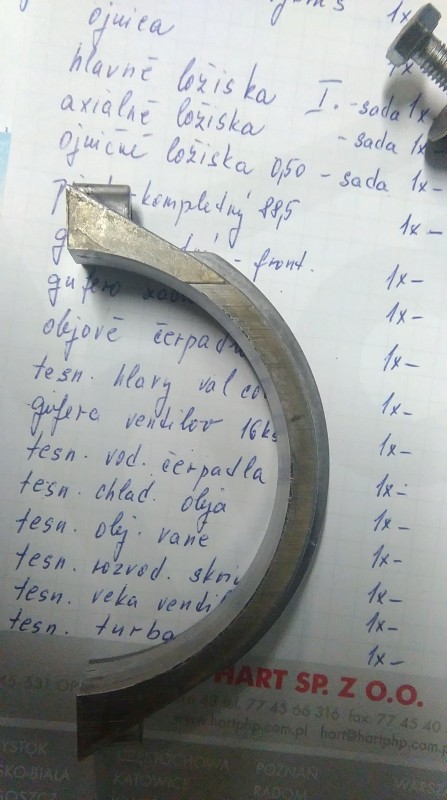 1x
ojnica
hlavné ložiska I. - sada 1x
axiálné ložiska - sada 1x
ojničné ložiska 0,50 - sada 1x -
kompletný 88,5 1x -
front. 1x -
gufero 1x -
olejové čerpadl 1x -
tesn. hlavy val 1x -
gufera ventilov 16ks 1x -
tesn. vod. čerpadla 1x -
tesn. chlad. oleja 1x -
tesn. olej. vane 1x -
tesn. rozvod. skri 1x -
tesn. veka venti 1x -
tesn. turba 1x -
HART SP. Z O.O.
tel. 77 45 66 316 fax. 77 45 40
www.hartphp.com.pl hart@hartphp.com.pl
CZĘSTOCHOWA POZNAŃ WARSZ
SKO-BIAŁA KATOWICE RADOM